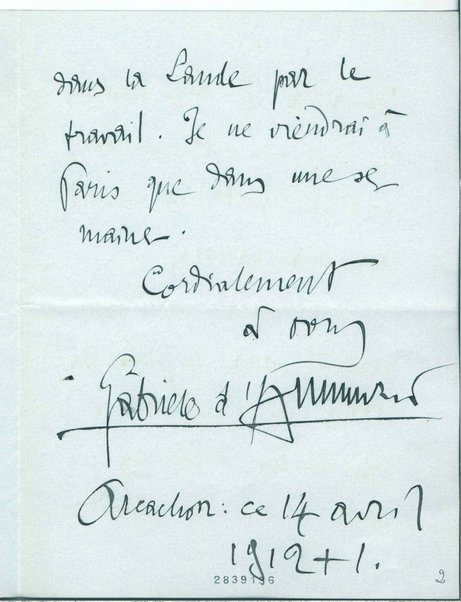 dans la Lande par le
travail. Je ne viendrai à
Paris que dans une se
maine.
Cordialement
à vous
Gabriele d'Annunzio
Arcachon: ce 14 avril
1912+1.
2839196
2